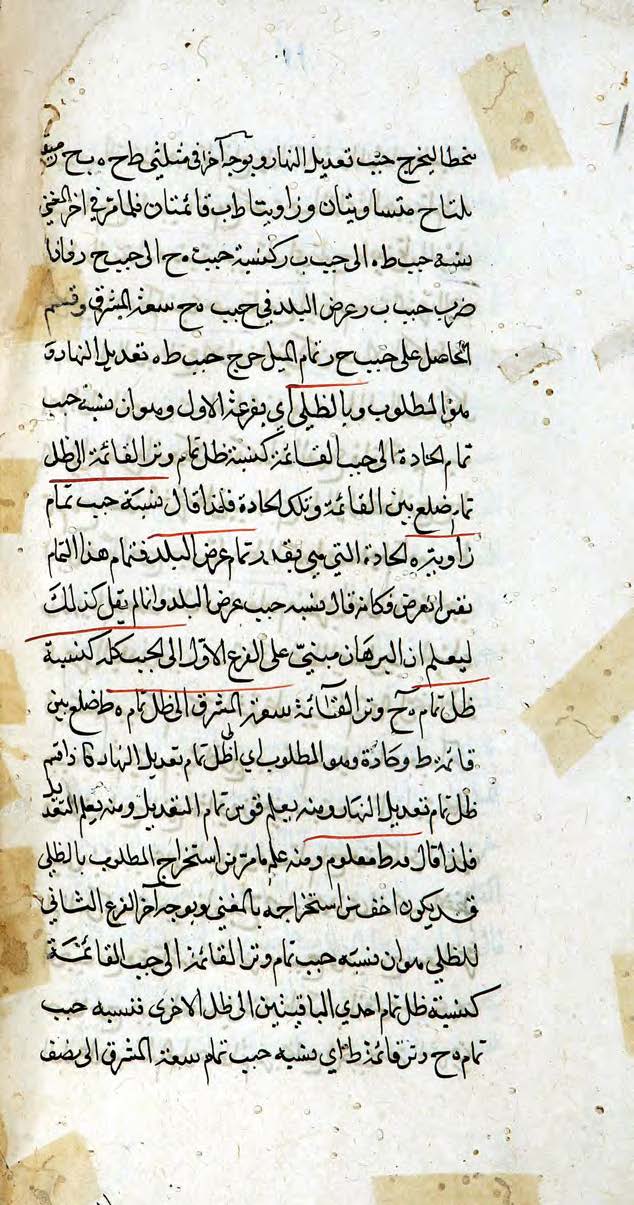 منحطا ليخرج جيب تعديل النهار وبوجه آخر في مثلثي طح ه بح ر
بلتاح متساويتان وزاويتا طب قائمتان فلما مر في اخر المغني
نسبة جيب طه الى جيب ب ر كنسبة جيب ه ح الى جيب ح ر فاذا
ضرب جيب ب ر عرض البلد في جيب ه ح سعة المشرق وقسم
الحاصل على جيب ح ر تمام الميل خرج جيب طه تعديل النهار و
هو المطلوب وبالظلي اي بفرعه الاول وهو ان نسبة جيب
تمام الحادة الى جيب القائمة كنسبة ظل تمام وتر القائمة الى ظل
تمام ضلع بين القائمة وتلك الحادة فلذا قال نسبة جيب تمام
زاوية ه الحادة التي هي بقدر تمام عرض البلد فتمام هذا التمام
نفس العرض فكانه قال نسبة جيب عرض البلد وانما لم يقل كذلك
ليعلم ان البرهان مبني على الفرع الاول الى الجيب كله كنسبة
ظل تمام ه ح وتر القائمة سعة المشرق الى ظل تمام ه ط ضلع بين
قائمة ط وحادة ه وهو المطلوب اي ظل تمام تعديل النهار فاذا قسم
ظل تمام تعديل النهار ومنه يعلم قوس تمام التعديل ومنه يعلم التعديل
فلذا قال فه ط معلوم ومنه علم ما مر من استخراج المطلوب بالظلي
قد يكون اخف من استخراجه بالمغني وبوجه آخر الفرع الثاني
للظلي هو ان نسبة جيب تمام وتر القائمة الى جيب القائمة
كنسبة ظل تمام احدي الباقيتين الى ظل الاخرى فنسبة جيب
تمام ه ح وتر قائمة ط اي نسبة جيب تمام سعة المشرق الى نصف